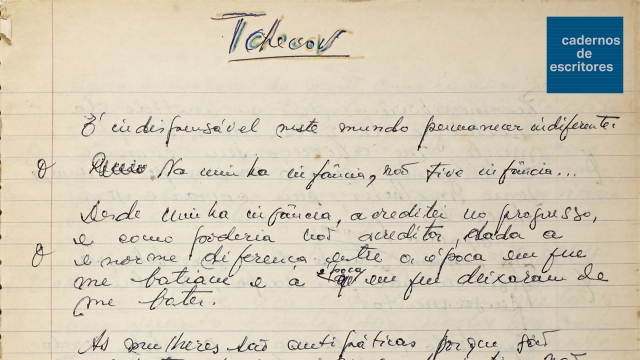 Tchecov
cadernos
de
escritores
É indispensável neste mundo permanecer indiferente.
Na minha infância, não tive infância...
Desde minha infância, acreditei no progresso,
e como poderia não acreditar, dada a
enorme diferença entre a época em que
me batiam e à época em que deixaram de
me bater.
As mulheres são antipáticas porque são